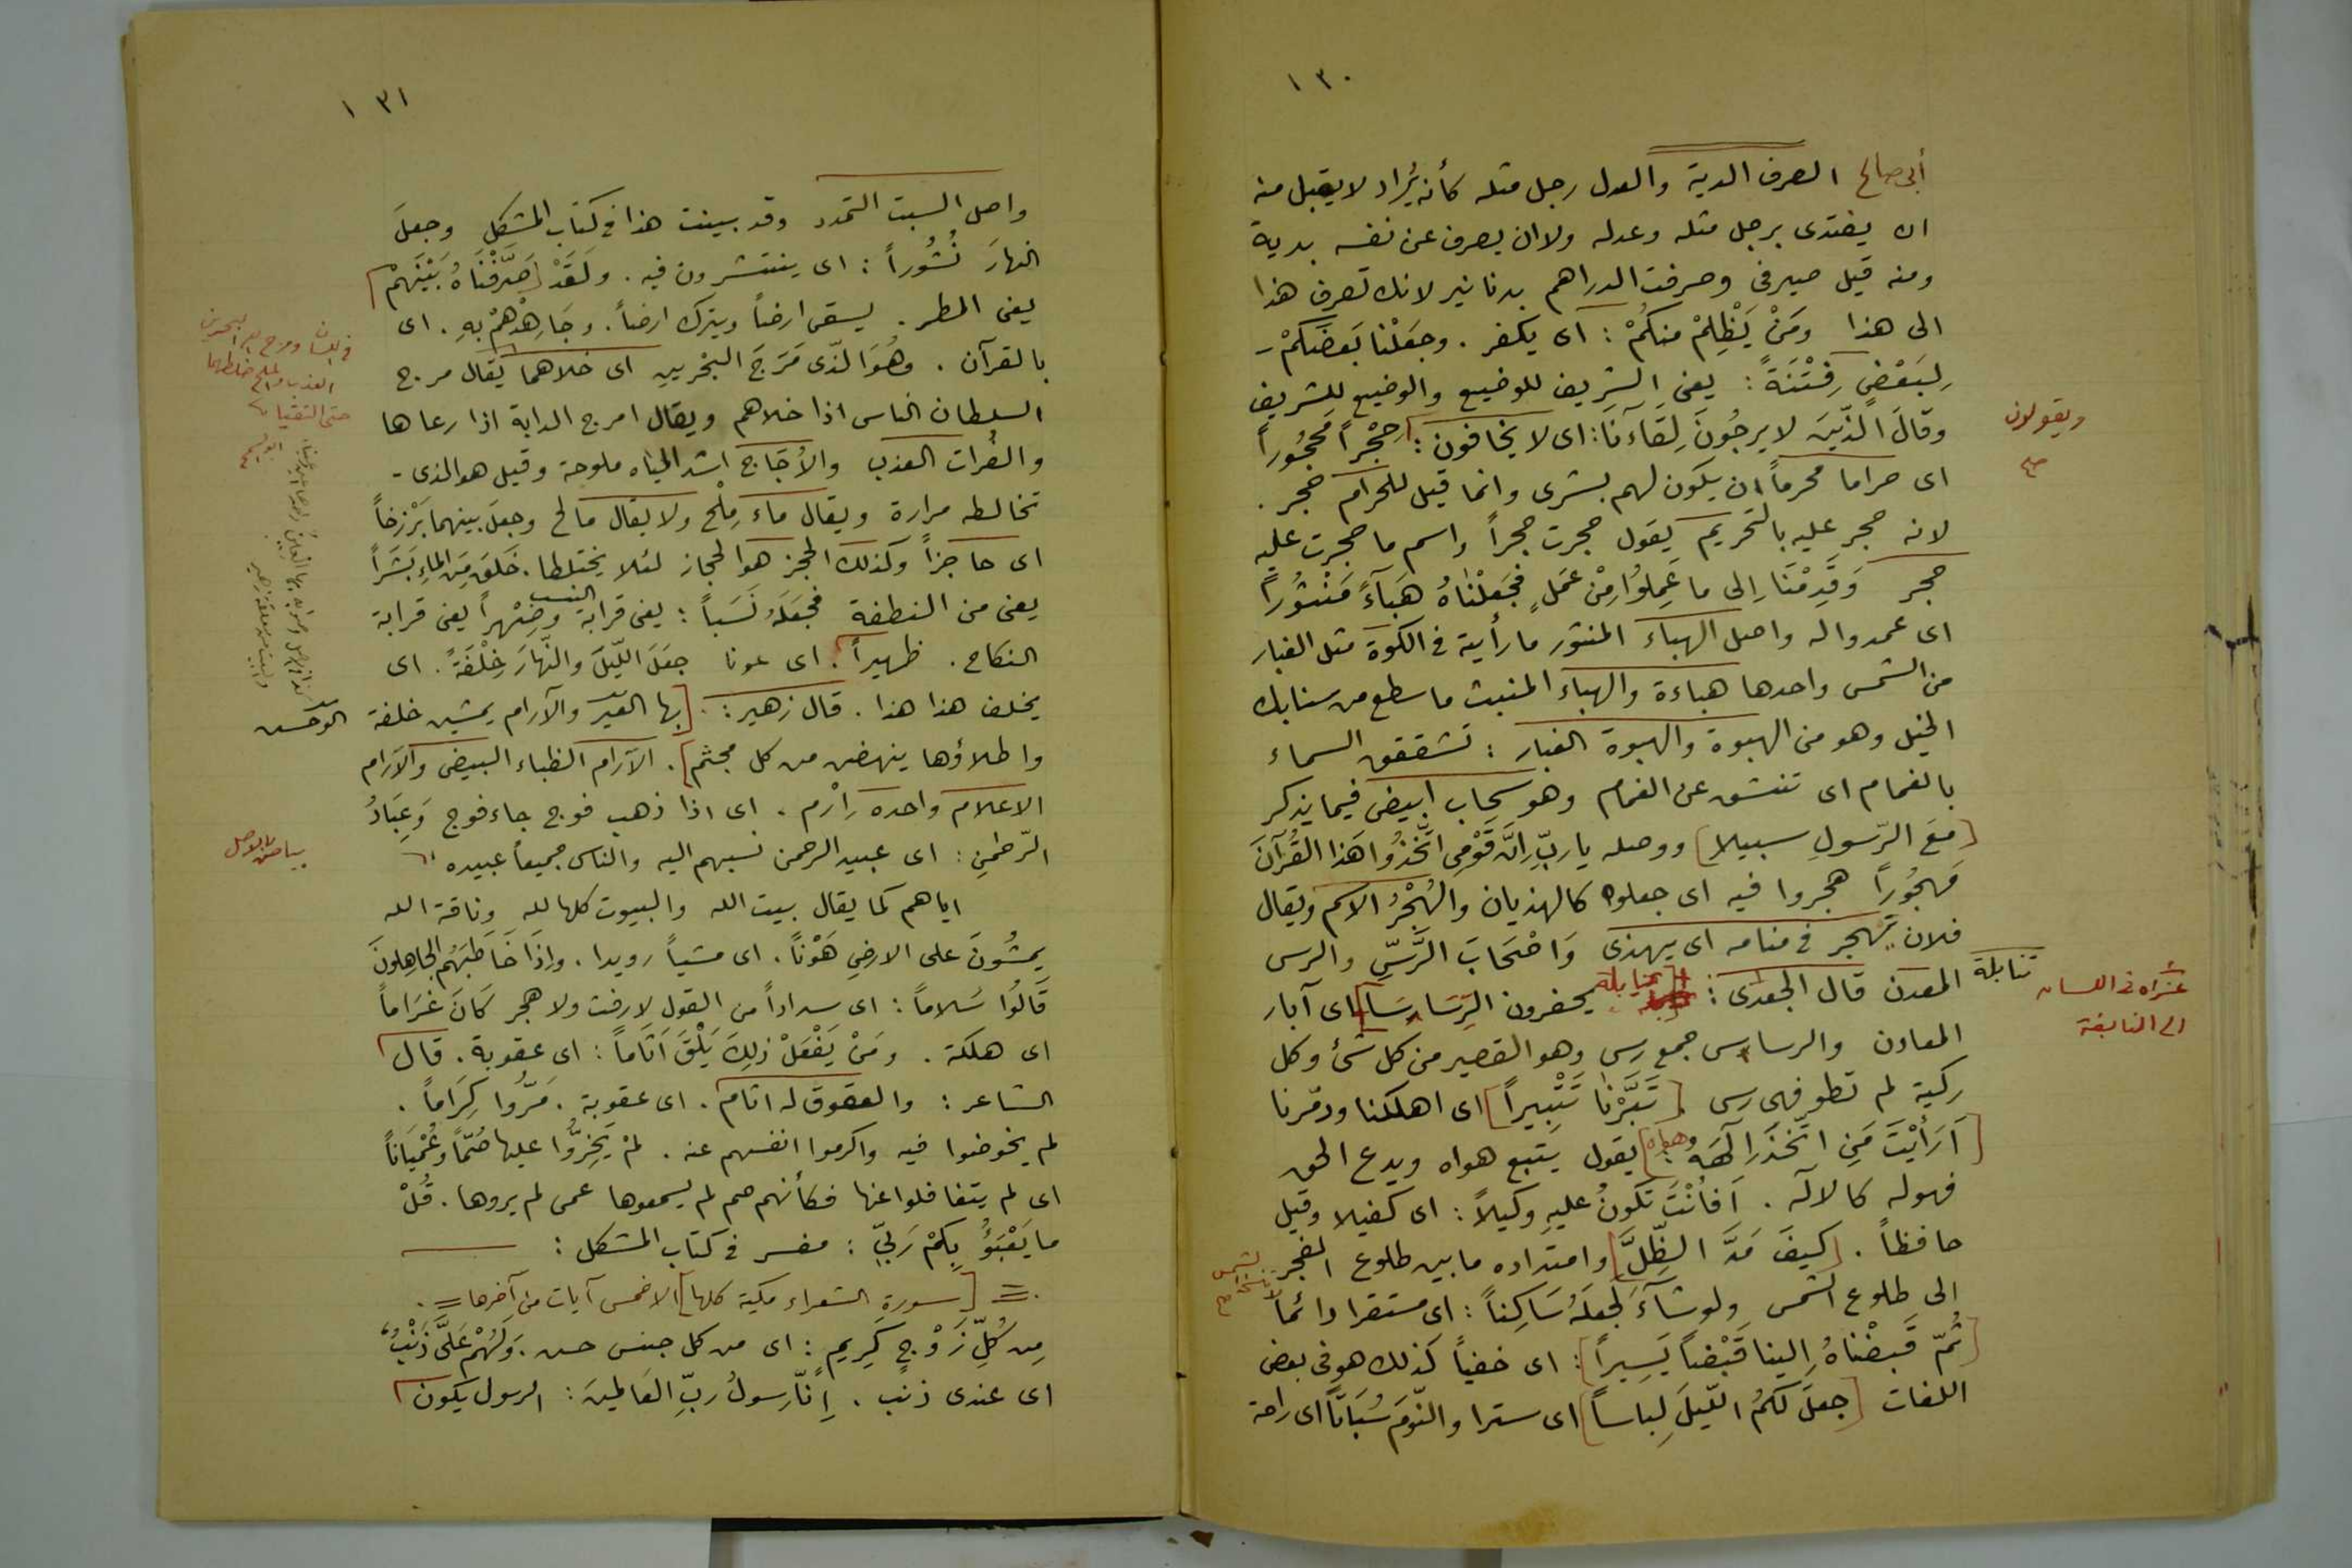 ١٣٠
أبى صالح الصرف الدية والعدل رجل مثله كأنه يُراد لا يقبل منه
ان يفتدى برجل مثله وعدله ولا ان يصرف عن نفسه بدية
ومنه قيل صيرفى وصرفت الدراهم بدنانير لانك تصرف هذا
الى هذا ومَنْ يَظْلِمْ منكُمْ : اى يكفر . وجعَلْنا بَعضَكُمْ -
لِبَعْضٍ فِتْنَةً : يعنى الشريف للوضيع والوضيع للشريف
وقالَ الذّينَ لا يرجُونَ لِقَاءَنَا : اى لا يخافون : حِجْراً مَحجُوراً
ويقولون
صح
اى حراما محرماً ان يكون لهم بشرى وانما قيل للحرام حجر .
لانه حجر عليه بالتحريم يقول حجرت حجراً واسم ما حجرت عليه
حجر وَقَدِمْنَا إلى ما عَمِلوُا مِنْ عَمَلٍ فَجَعَلْنٰاهُ هَبَآءً مَنْثُوراً
اى عمدوا له واصل الهباء المنثور ما رأيته فى الكوة مثل الغبار
من الشمس واحدها هباءة والهباء المنبث ما سطع من سنابك
الخيل وهو من الهبوة والهبوة الغبار : تشقق السماء
بالغمام اى تنشق عن الغمام وهو سحاب ابيض فيما يذكر
[مَعَ الرّسولِ سبيلا] ووصله يا ربِّ إنَّ قَوْمِى اتَّخذُوا هَذا القُرآنَ
مَهجُوراً هجروا فيه اى جعلوه كالهذيان والهُجْرُ الاسم ويقال
فلان يَهجر فى منامه اى يهذى وَاصْحَابَ الرَّسِّ والرس
المعدن قال الجعدى : تنابلة يحفرون الرِّسَاسَا اى آبار
تنابلة
عَزاه فى اللسان
الى النابغة
المعادن والرساس جمع رس وهو القصير من كل شئ وكل
ركية لم تطو فهى رس [تَبَّرْنٰا تَتْبِيراً] اى اهلكنا ودمّرنا
[أَرَأَيْتَ مَنِ اتَّخَذَ إلَهَهُ هواه] يقول يتبع هواه ويدع الحق
فهو له كالآله . أَفأنْتَ تَكونُ عليهِ وكيلاً : اى كفيلا وقيل
حافظاً . [كيفَ مَدَّ الظِّلَّ] وامتداده ما بين طلوع الفجر
الى طلوع الشمس ولو شآءَ لَجعَلَهُ سَاكِناً : اى مستقرا دائماً
[ثُمّ قَبَضْنٰاهُ إلينا قَبْضاً يَسِيراً] : اى خفياً كذلك هو فى بعض
اللغات [جعَلَ لكمُ اللّيلَ لِباساً] اى سترا والنّومَ سُبَاتاً اى راحة
١٣١
واصل السبت التمدد وقد بينت هذا فى كتاب المشكل وجعلَ
النهارَ نُشُوراً : اى ينتشرون فيه . ولَقَدْ [صَرَّفْنَاهُ بَيْنَهمْ]
يعنى المطر . يسقى ارضاً ويترك ارضاً . وجَاهِدْهُمْ بِهِ . اى
بالقرآن . وهُوَ الّذى مَرَجَ البَحْرينِ اى خلاهما يقال مرج
السلطان الناس اذا خلاهم ويقال امرج الدابة اذا رعاها
والفُرات العذب والأُجَاج اشد المياه ملوحة وقيل هو الذى -
تخالطه مرارة ويقال ماء مِلْح ولا يقال مالح وجعلَ بينهما بَرْزخاً
اى حاجزاً وكذلك الحجز هو الحجاز لئلا يختلطا . خَلَقَ مِنَ الماءِ بَشَراً
يعنى من النطفة فجعَلَهُ نَسَباً : يعنى قرابة النسب وصِهْراً يعنى قرابة
النكاح . ظهيراً . اى عونا جعَلَ اللّيلَ والنّهارَ خِلْفَةً . اى
يخلف هذا هذا . قال زهير : [بها العَين والآرام يمشين خلفة
واطلاؤها ينهضن من كل مجثم] . الآرام الظباء البيض والآرام
الاعلام واحده إرْم . اى اذا ذهب فوج جاء فوج وَعِبَادُ
الرّحمٰنِ : اى عبيد الرحمن نسبهم اليه والناس جميعاً عبيده
بياض بالاصل
اياهم كما يقال بيت الله والبيوت كلها لله وناقة الله
يمشُونَ على الارضِ هَوْناً . اى مشياً رويدا . وإذَا خَاطَبَهُم الجاهِلونَ
قَالُوا سَلاماً : اى سداداً من القول لا رفث ولا هجر كَانَ غَرَاماً
اى هلكة . ومَنْ يَفْعَلْ ذلِكَ يَلْقَ اثَاماً : اى عقوبة . قال
الشاعر : والعقوق له اثام . اى عقوبة . مَرُّوا كِرَاماً .
لم يخوضوا فيه واكرموا انفسهم عنه . لمْ يَخِرُّوا عليها صُمّاً وعُمْيَاناً
اى لم يتغافلوا عنها فكأنهم صم لم يسمعوها عمى لم يروها . قُلْ
ما يَعْبَؤُ بِكُمْ رَبّى : مفسر فى كتاب المشكل :
= [سورة الشعراء مكية كلها] الا خمس آيات من آخرها =
مِن كُلِّ زَوْجٍ كَرِيمٍ : اى من كل جنس حسن . وَلَهُمْ عَلَىَّ ذَنْبٌ
اى عندى ذنب . إنّا رسولُ ربِّ العَالمينَ : الرسول يكون